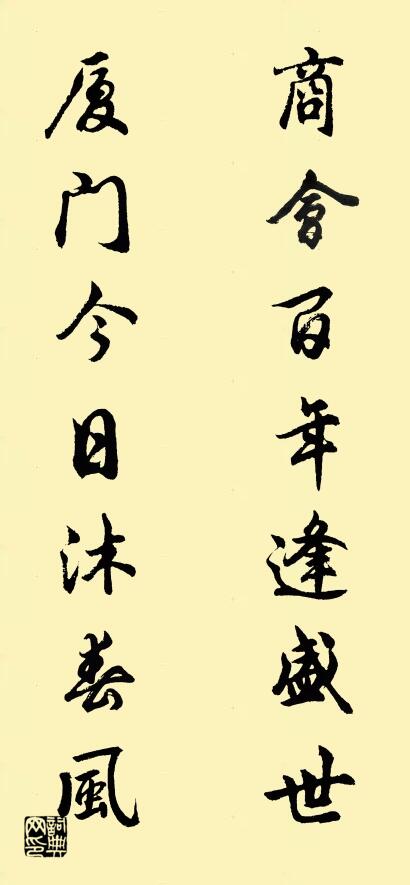 商會百年逢盛世
厦门今日沐春風
詞典网印